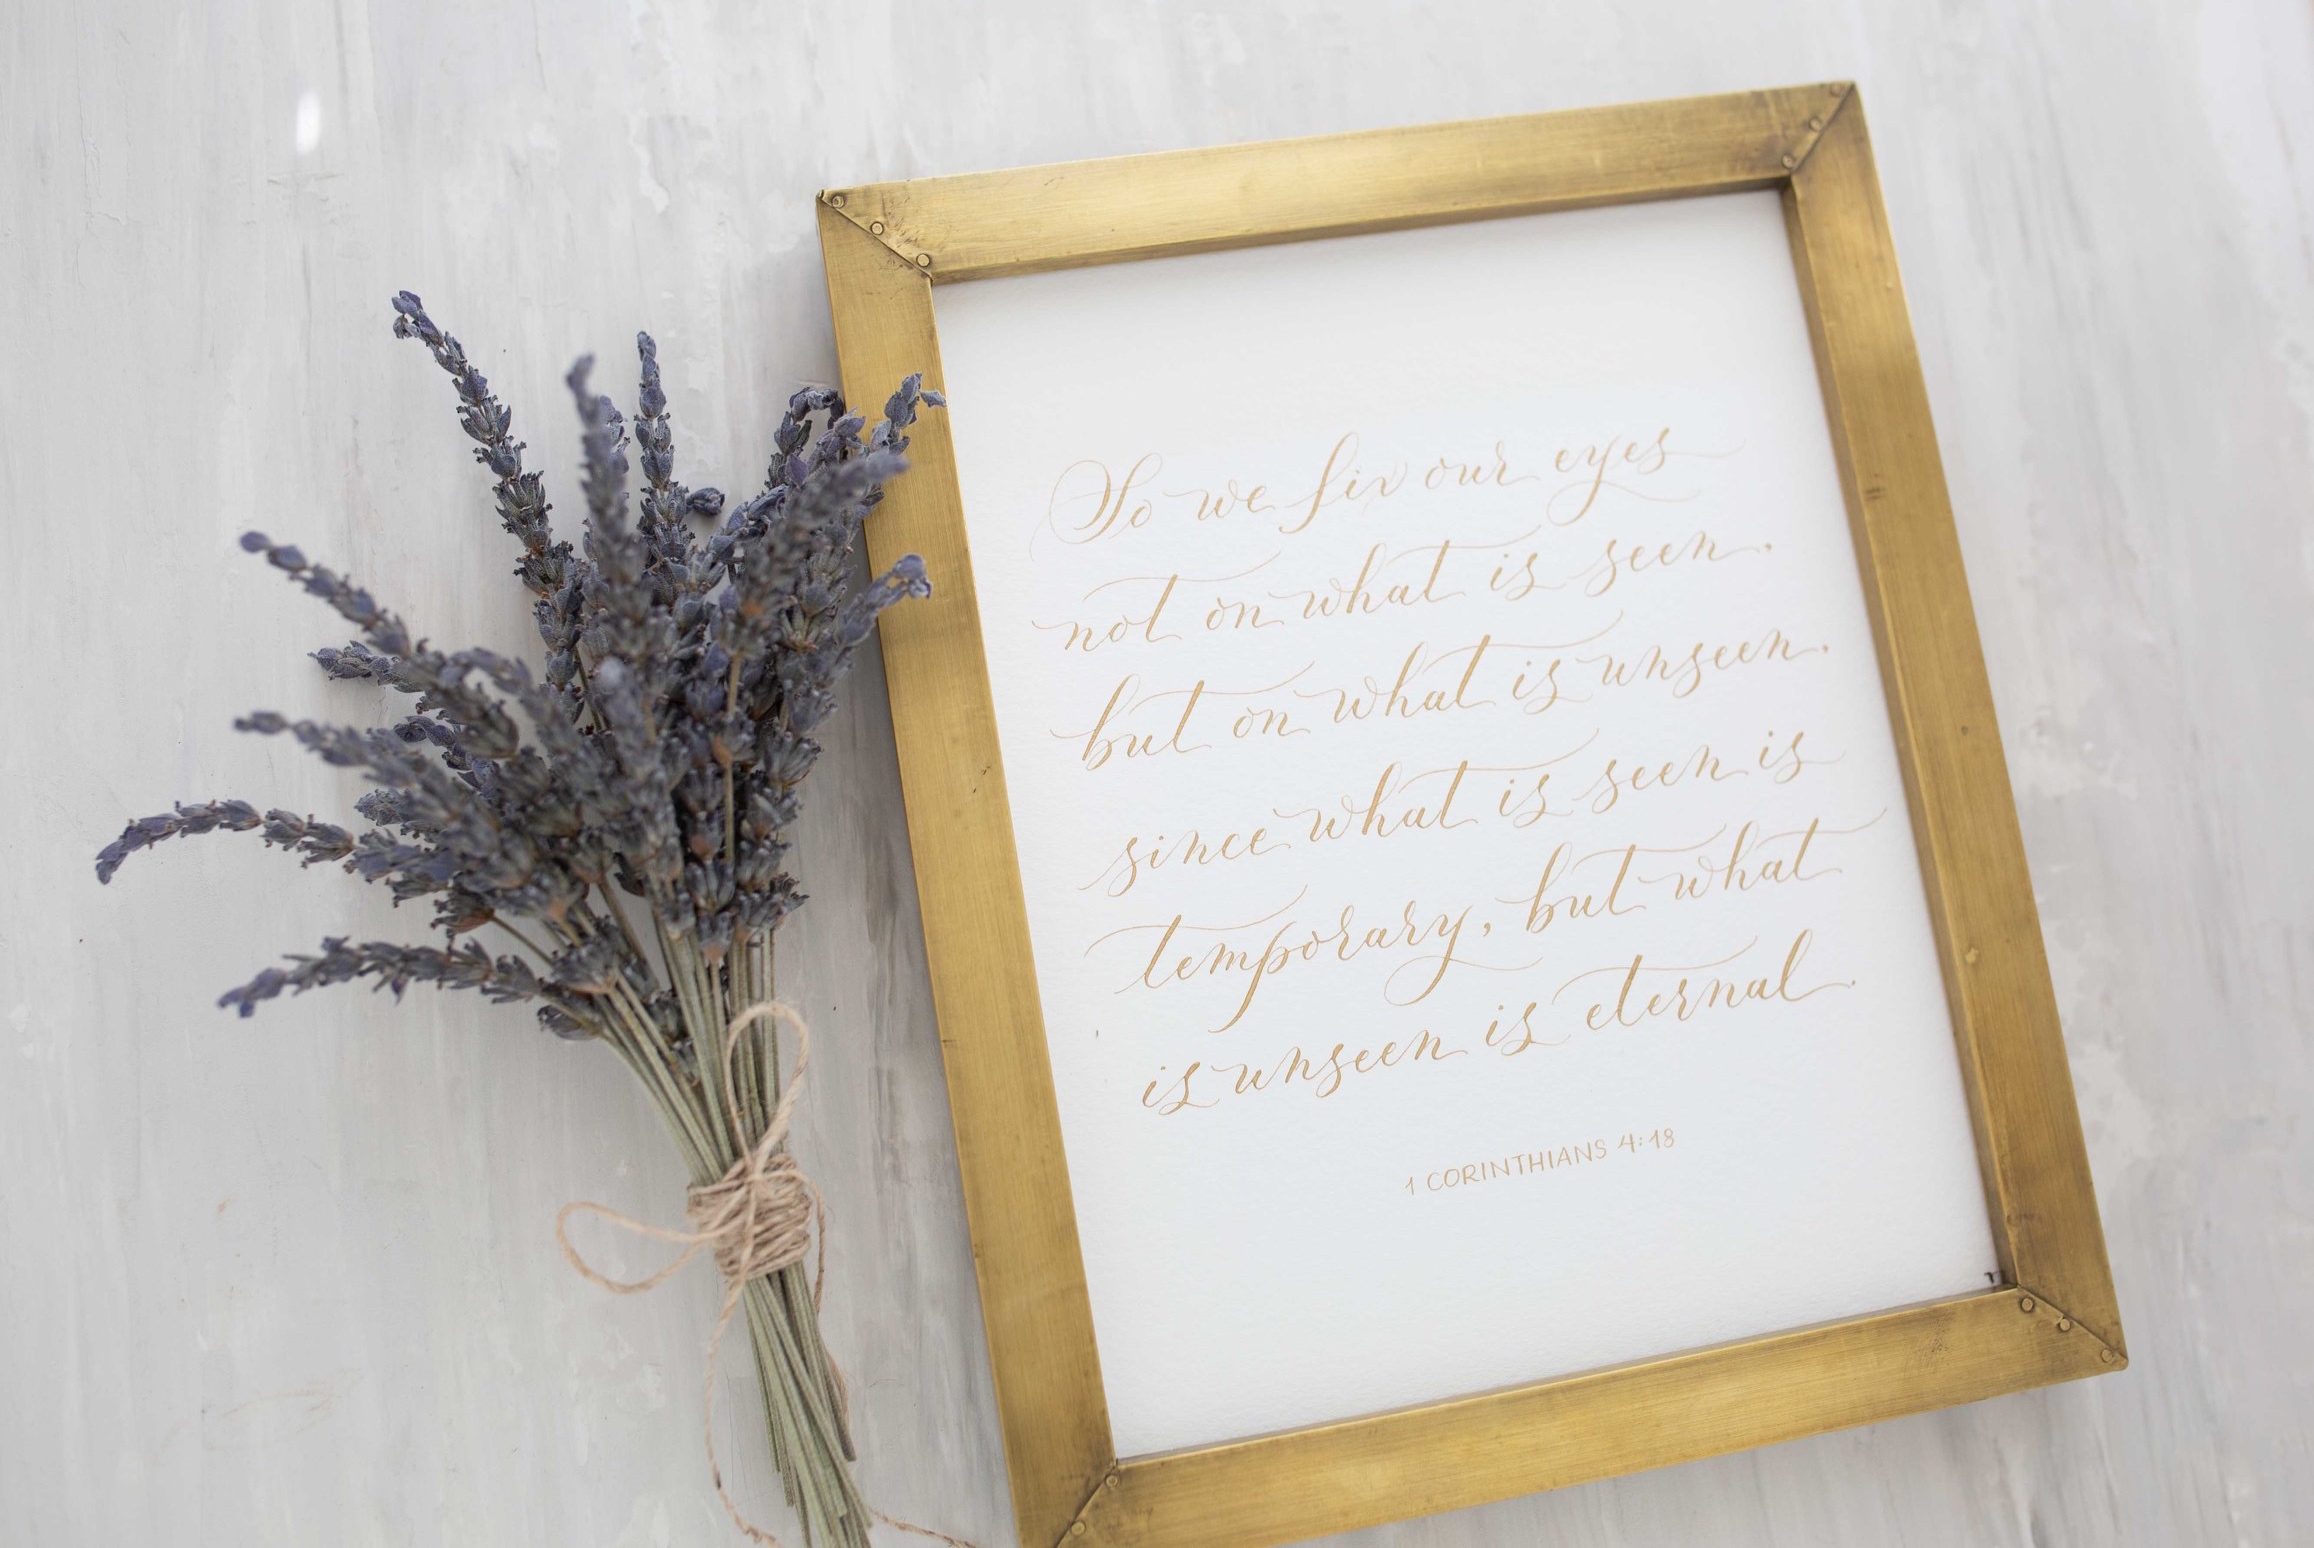 So we fix our eyes
not on what is seen,
but on what is unseen,
since what is seen is
temporary, but what
is unseen is eternal.
1 CORINTHIANS 4:18